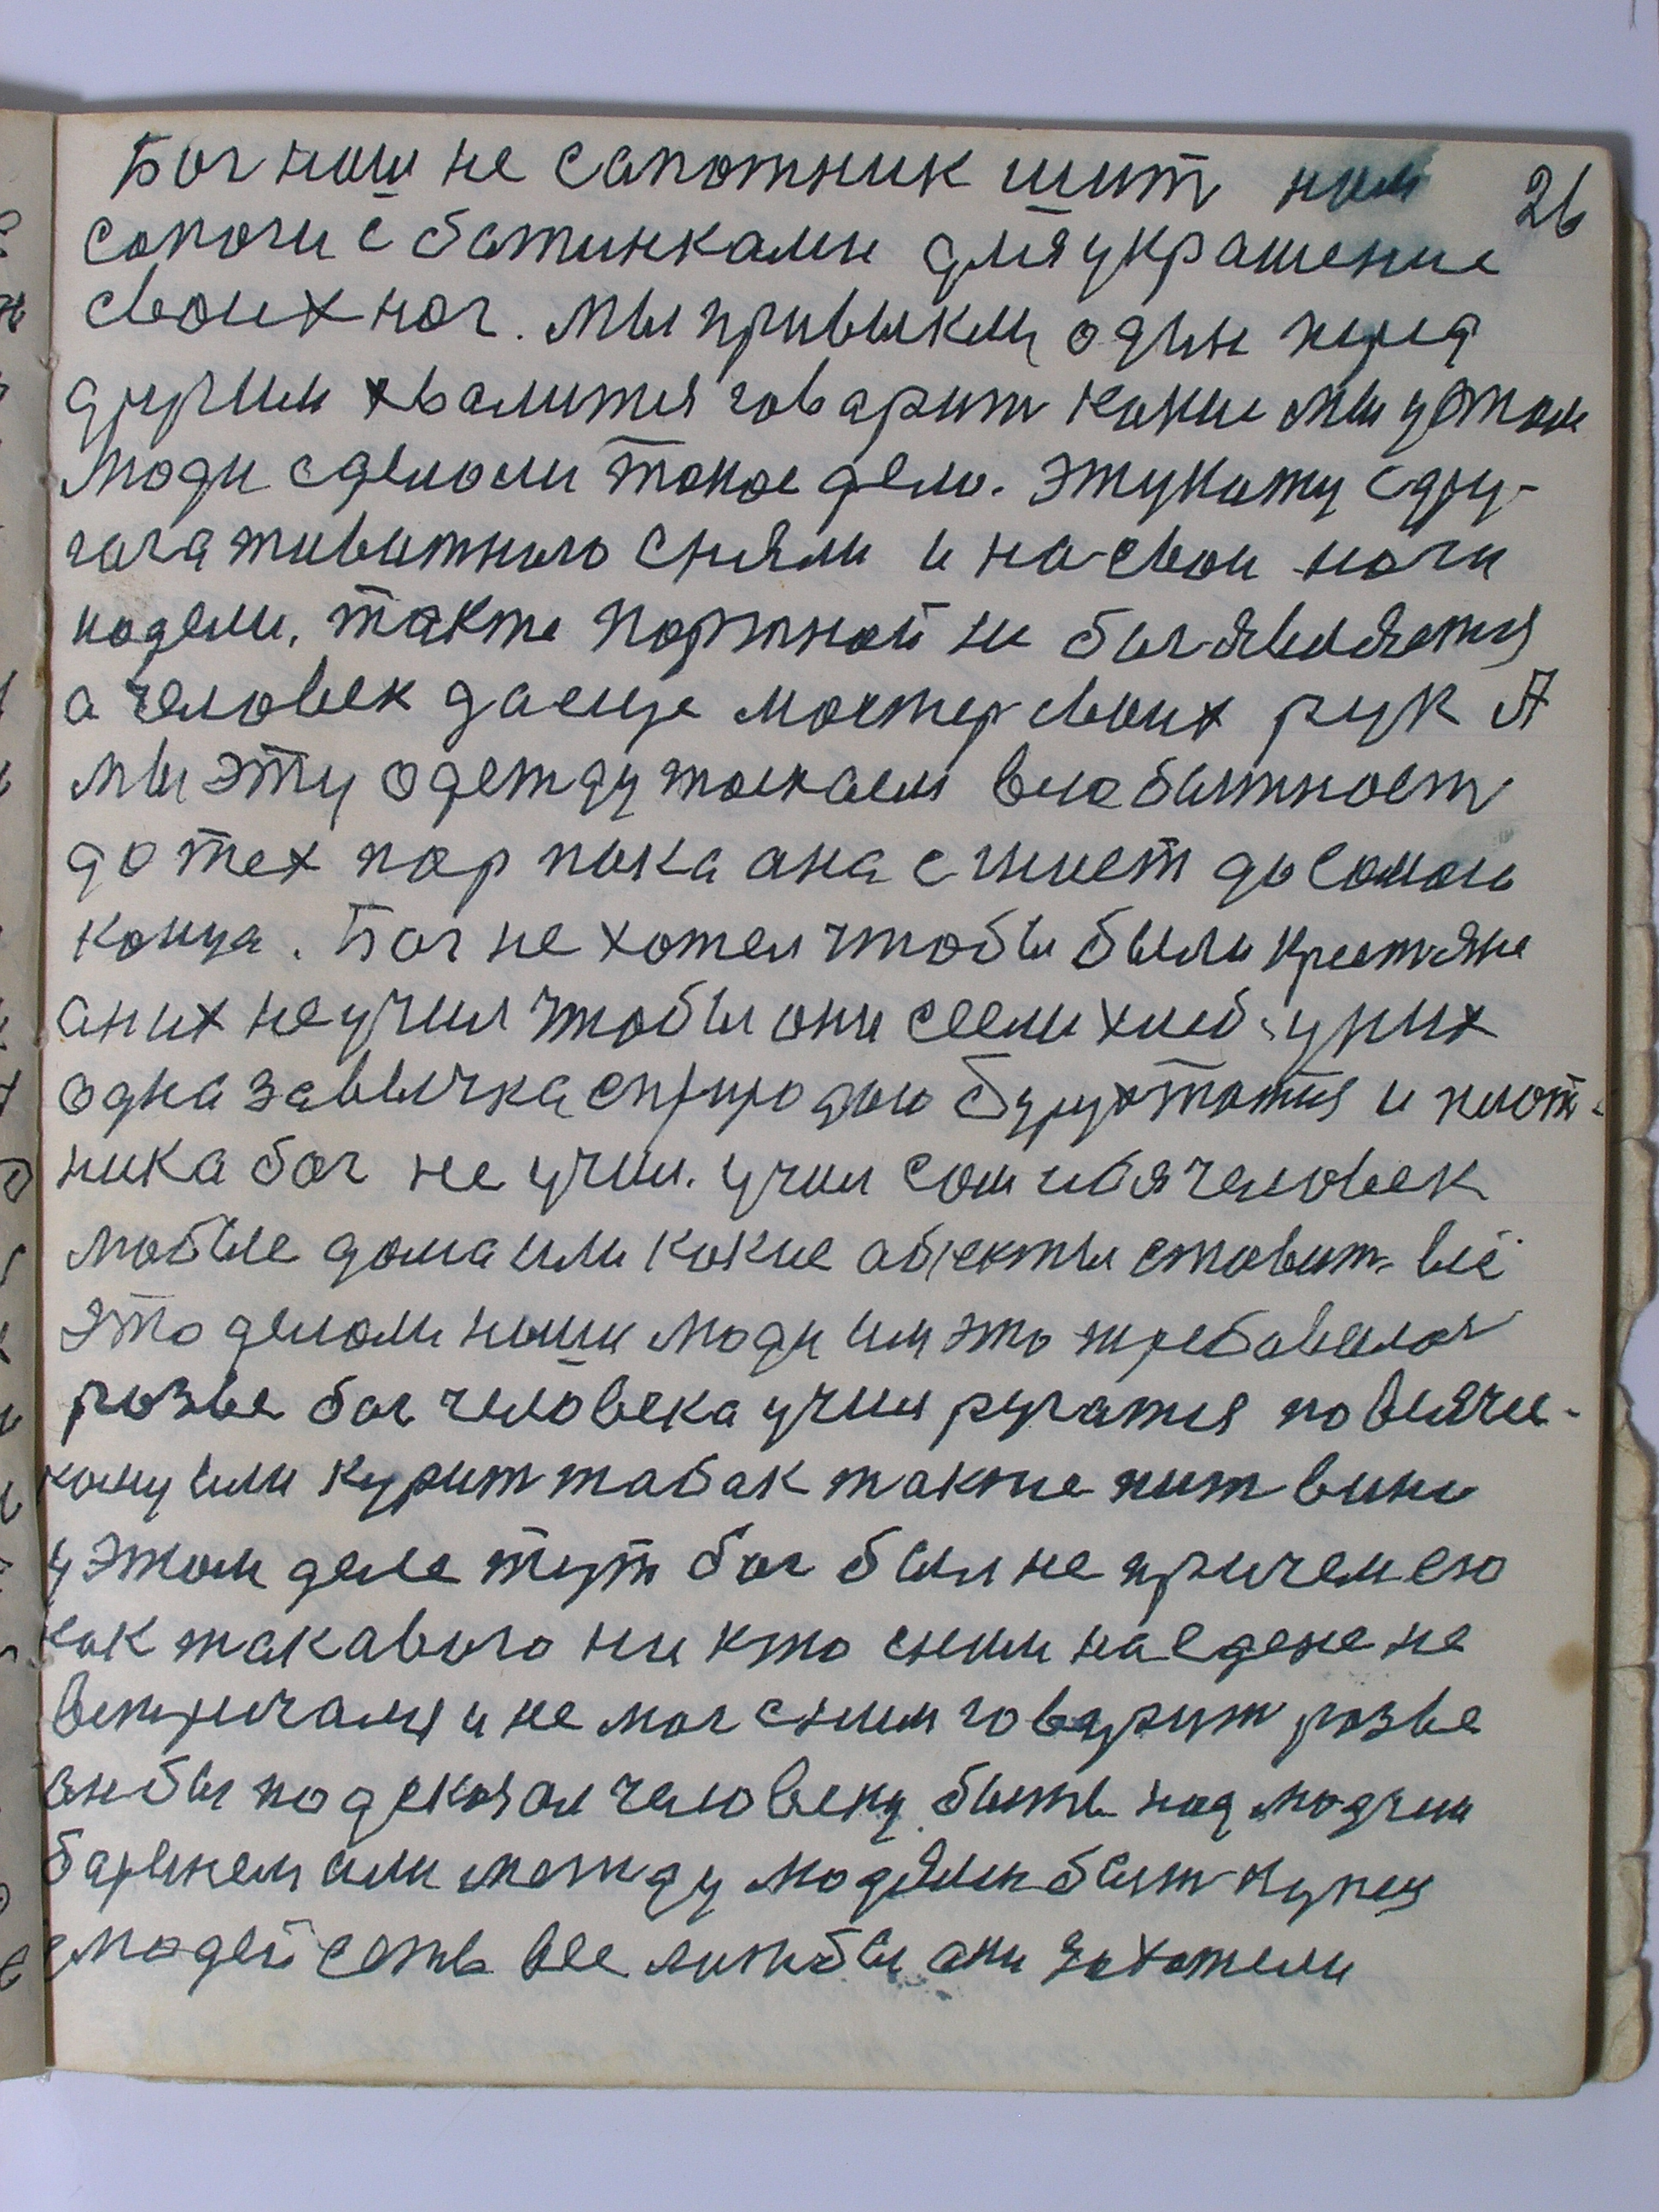 Бог наш не сапожник шит нам 26
сапоги с ботинками для украшение
своих ног. Мы привыкли один перед
другим хвалится говарит какие мы устали
люди сделали такое дело. Эту кожу с дру-
гога животного сняли и на свои ноги
надели, также портной не бог является
а человек да еще мостер своих рук А
мы эту одежду таскаем
до тех пор пока ана сгниет до самого
конца. Бог не хотел чтобы были крестяне
а них не учил чтобы они сеели хлеб у них
одна завычка с природою бурухтатся и плот-
ника бог не учил. учил сам себя человек
любые дома или какие абьекты ставит. всё
это делали наши люди им это требавалос
разве бог человека учил ругатся по всяче-
кому или курит табак также пит вино
у этом деле тут бог был не причем его
как такавого ни кто с ним наедене не
встричался и не мог с ним говарит разве
он бы подсказал человеку быть над людми
барином или между людями быт купец
людей есть все лиж бы они захотели